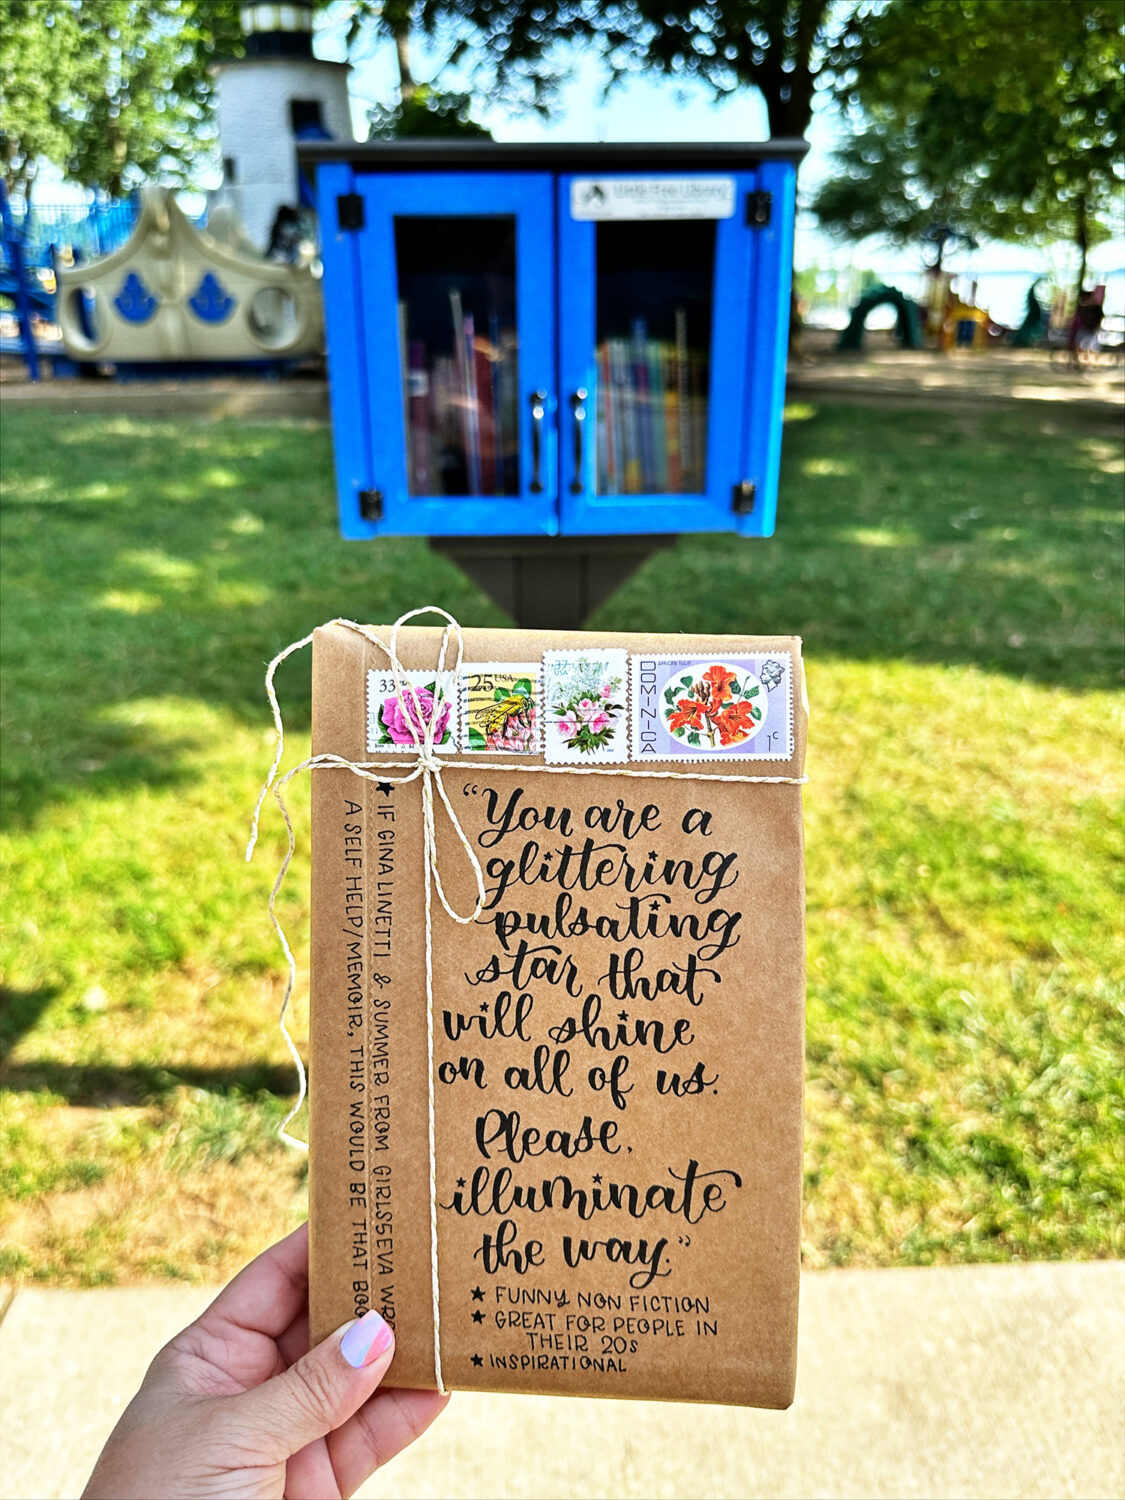 Little Free Library
33 USA
25 USA
37
USA
AFRICAN TULIP
DOMINICA
1c
“You are a
glittering
pulsating
star that
will shine
on all of us.
Please,
illuminate
the way.”
★ FUNNY NON FICTION
★ GREAT FOR PEOPLE IN
THEIR 20s
★ INSPIRATIONAL
★ IF GINA LINETTI & SUMMER FROM GIRLS5EVA WRO
A SELF HELP/MEMOIR, THIS WOULD BE THAT BOO